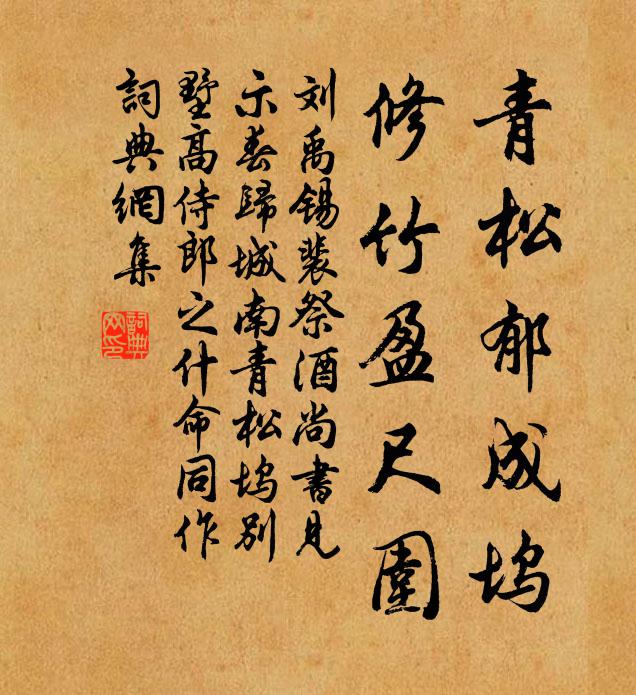 青松郁成坞
修竹盈尺围
刘禹锡裴祭酒尚書見
示春歸城南青松坞别
墅高侍郎之什命同作
詞典網集
詞典網印